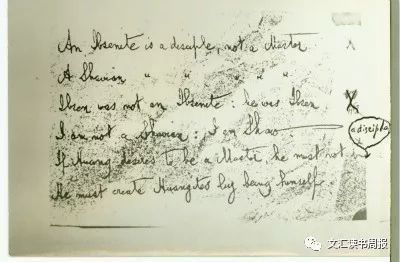 An Ibsenite is a disciple, not a Master
A Shavian " " " " "
Ibsen was not an Ibsenite: he was Ibsen
I am not a Shavian: I am Shaw
a disciple
If Huang desires to be a Master he must not
He must create by being himself
文汇读书周报